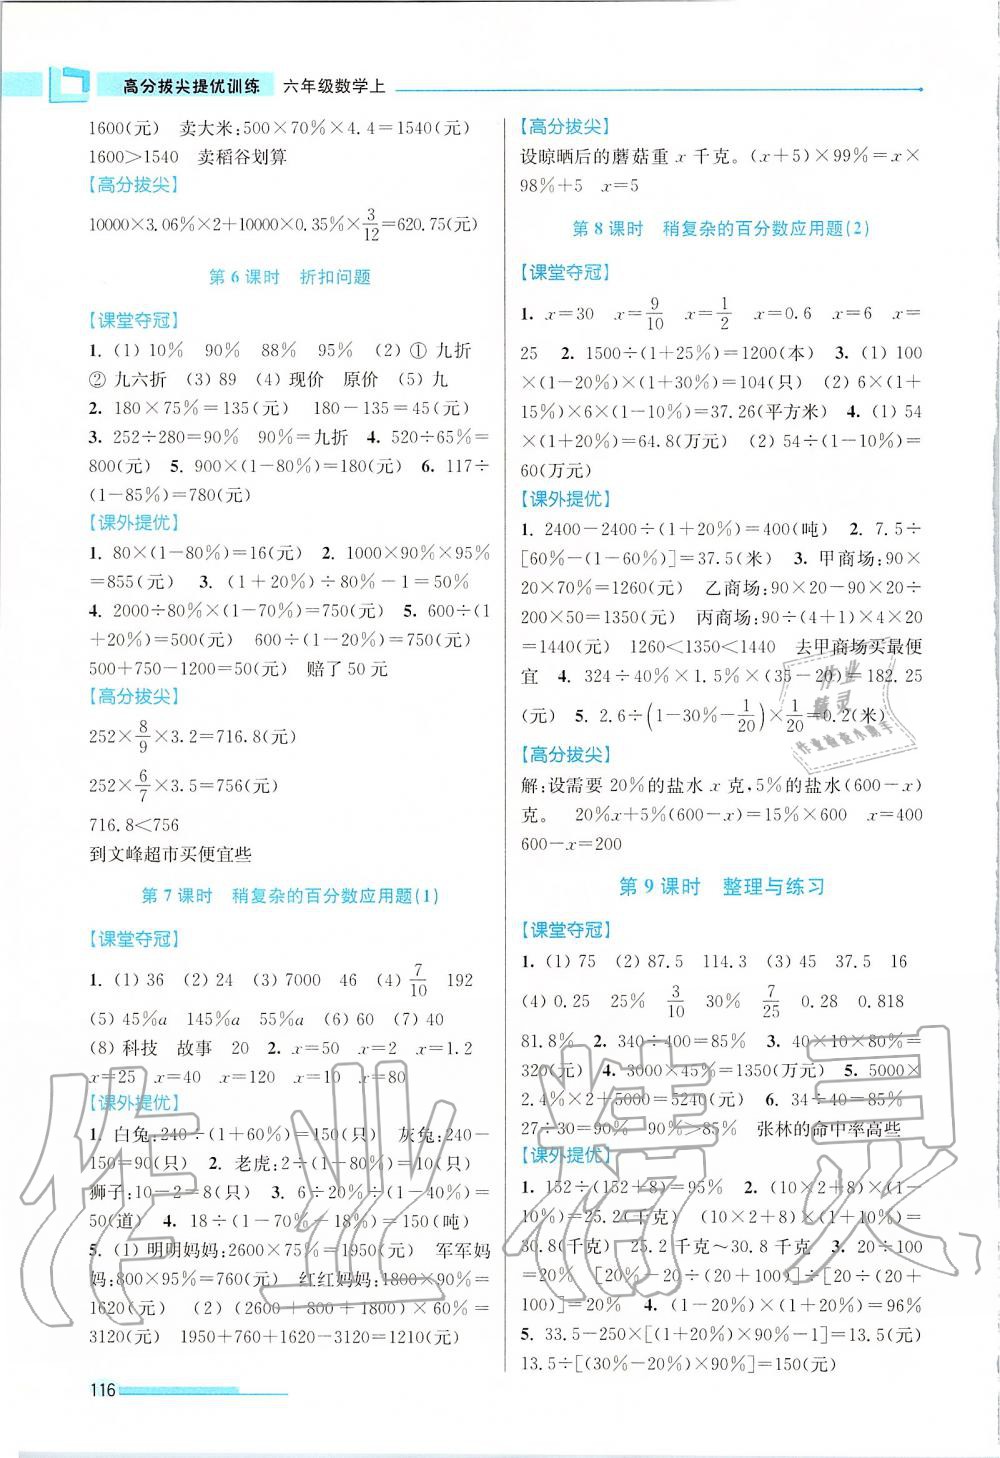 高分拔尖提优训练 六年级数学上
1600(元) 卖大米:500×70%×4.4=1540(元)
1600>1540 卖稻谷划算
【高分拔尖】
10000×3.06%×2+10000×0.35%×3/12=620.75(元)
第6课时 折扣问题
【课堂夺冠】
1. (1) 10% 90% 88% 95% (2) ① 九折
② 九六折 (3) 89 (4) 现价 原价 (5) 九
2. 180×75%=135(元) 180-135=45(元)
3. 252÷280=90% 90%=九折 4. 520÷65%=
800(元) 5. 900×(1-80%)=180(元) 6. 117÷
(1-85%)=780(元)
【课外提优】
1. 80×(1-80%)=16(元) 2. 1000×90%×95%
=855(元) 3. (1+20%)÷80%-1=50%
4. 2000÷80%×(1-70%)=750(元) 5. 600÷(1
+20%)=500(元) 600÷(1-20%)=750(元)
500+750-1200=50(元) 赔了50元
【高分拔尖】
252×8/9×3.2=716.8(元)
252×6/7×3.5=756(元)
716.8<756
到文峰超市买便宜些
第7课时 稍复杂的百分数应用题(1)
【课堂夺冠】
1. (1) 36 (2) 24 (3) 7000 46 (4) 7/10 192
(5) 45%a 145%a 55%a (6) 60 (7) 40
(8) 科技 故事 20 2. x=50 x=2 x=1.2
x=25 x=40 x=120 x=10 x=80
【课外提优】
1. 白兔:240÷(1+60%)=150(只) 灰兔:240-
150=90(只) 2. 老虎:2÷(1-80%)=10(只)
狮子:10-2=8(只) 3. 6÷20%÷(1-40%)=
50(道) 4. 18÷(1-70%-18%)=150(吨)
5. (1) 明明妈妈:2600×75%=1950(元) 军军妈
妈:800×95%=760(元) 红红妈妈:1800×90%=
1620(元) (2) (2600+800+1800)×60%=
3120(元) 1950+760+1620-3120=1210(元)
116
【高分拔尖】
设晾晒后的蘑菇重x千克。(x+5)×99%=x×
98%+5 x=5
第8课时 稍复杂的百分数应用题(2)
【课堂夺冠】
1. x=30 x=9/10 x=1/2 x=0.6 x=6 x=
25 2. 1500÷(1+25%)=1200(本) 3. (1) 100
×(1-20%)×(1+30%)=104(只) (2) 6×(1+
15%)×6×(1-10%)=37.26(平方米) 4. (1) 54
×(1+20%)=64.8(万元) (2) 54÷(1-10%)=
60(万元)
【课外提优】
1. 2400-2400÷(1+20%)=400(吨) 2. 7.5÷
[60%-(1-60%)]=37.5(米) 3. 甲商场:90×
20×70%=1260(元) 乙商场:90×20-90×20÷
200×50=1350(元) 丙商场:90÷(4+1)×4×20
=1440(元) 1260<1350<1440 去甲商场买最便
宜 4. 324÷40%×1.5%×(35-20)=182.25
(元) 5. 2.6÷(1-30%-1/20)×1/20=0.2(米)
【高分拔尖】
解:设需要20%的盐水x克,5%的盐水(600-x)
克。 20%x+5%(600-x)=15%×600 x=400
600-x=200
第9课时 整理与练习
【课堂夺冠】
1. (1) 75 (2) 87.5 114.3 (3) 45 37.5 16
(4) 0.25 25% 3/10 30% 7/25 0.28 0.818
81.8% 2. 340÷400=85% 3. 40×10×80%=
320(元) 4. 3000×45%=1350(万元) 5. 5000×
2.4%×2+5000=5240(元) 6. 34÷40=85%
27÷30=90% 90%>85% 张林的命中率高些
【课外提优】
1. 152÷(152+8)=95% 2. (10×2+8)×(1-
10%)=25.2(千克) (10×2+8)×(1+10%)=
30.8(千克) 25.2千克~30.8千克 3. 20÷100
=20% [20-20÷(20+100)×20]÷[20÷(20+
100)]=20% 4. (1-20%)×(1+20%)=96%
5. 33.5-250×[(1+20%)×90%-1]=13.5(元)
13.5÷[(30%-20%)×90%]=150(元)
作业
精灵
作业检查小助手
作业精灵